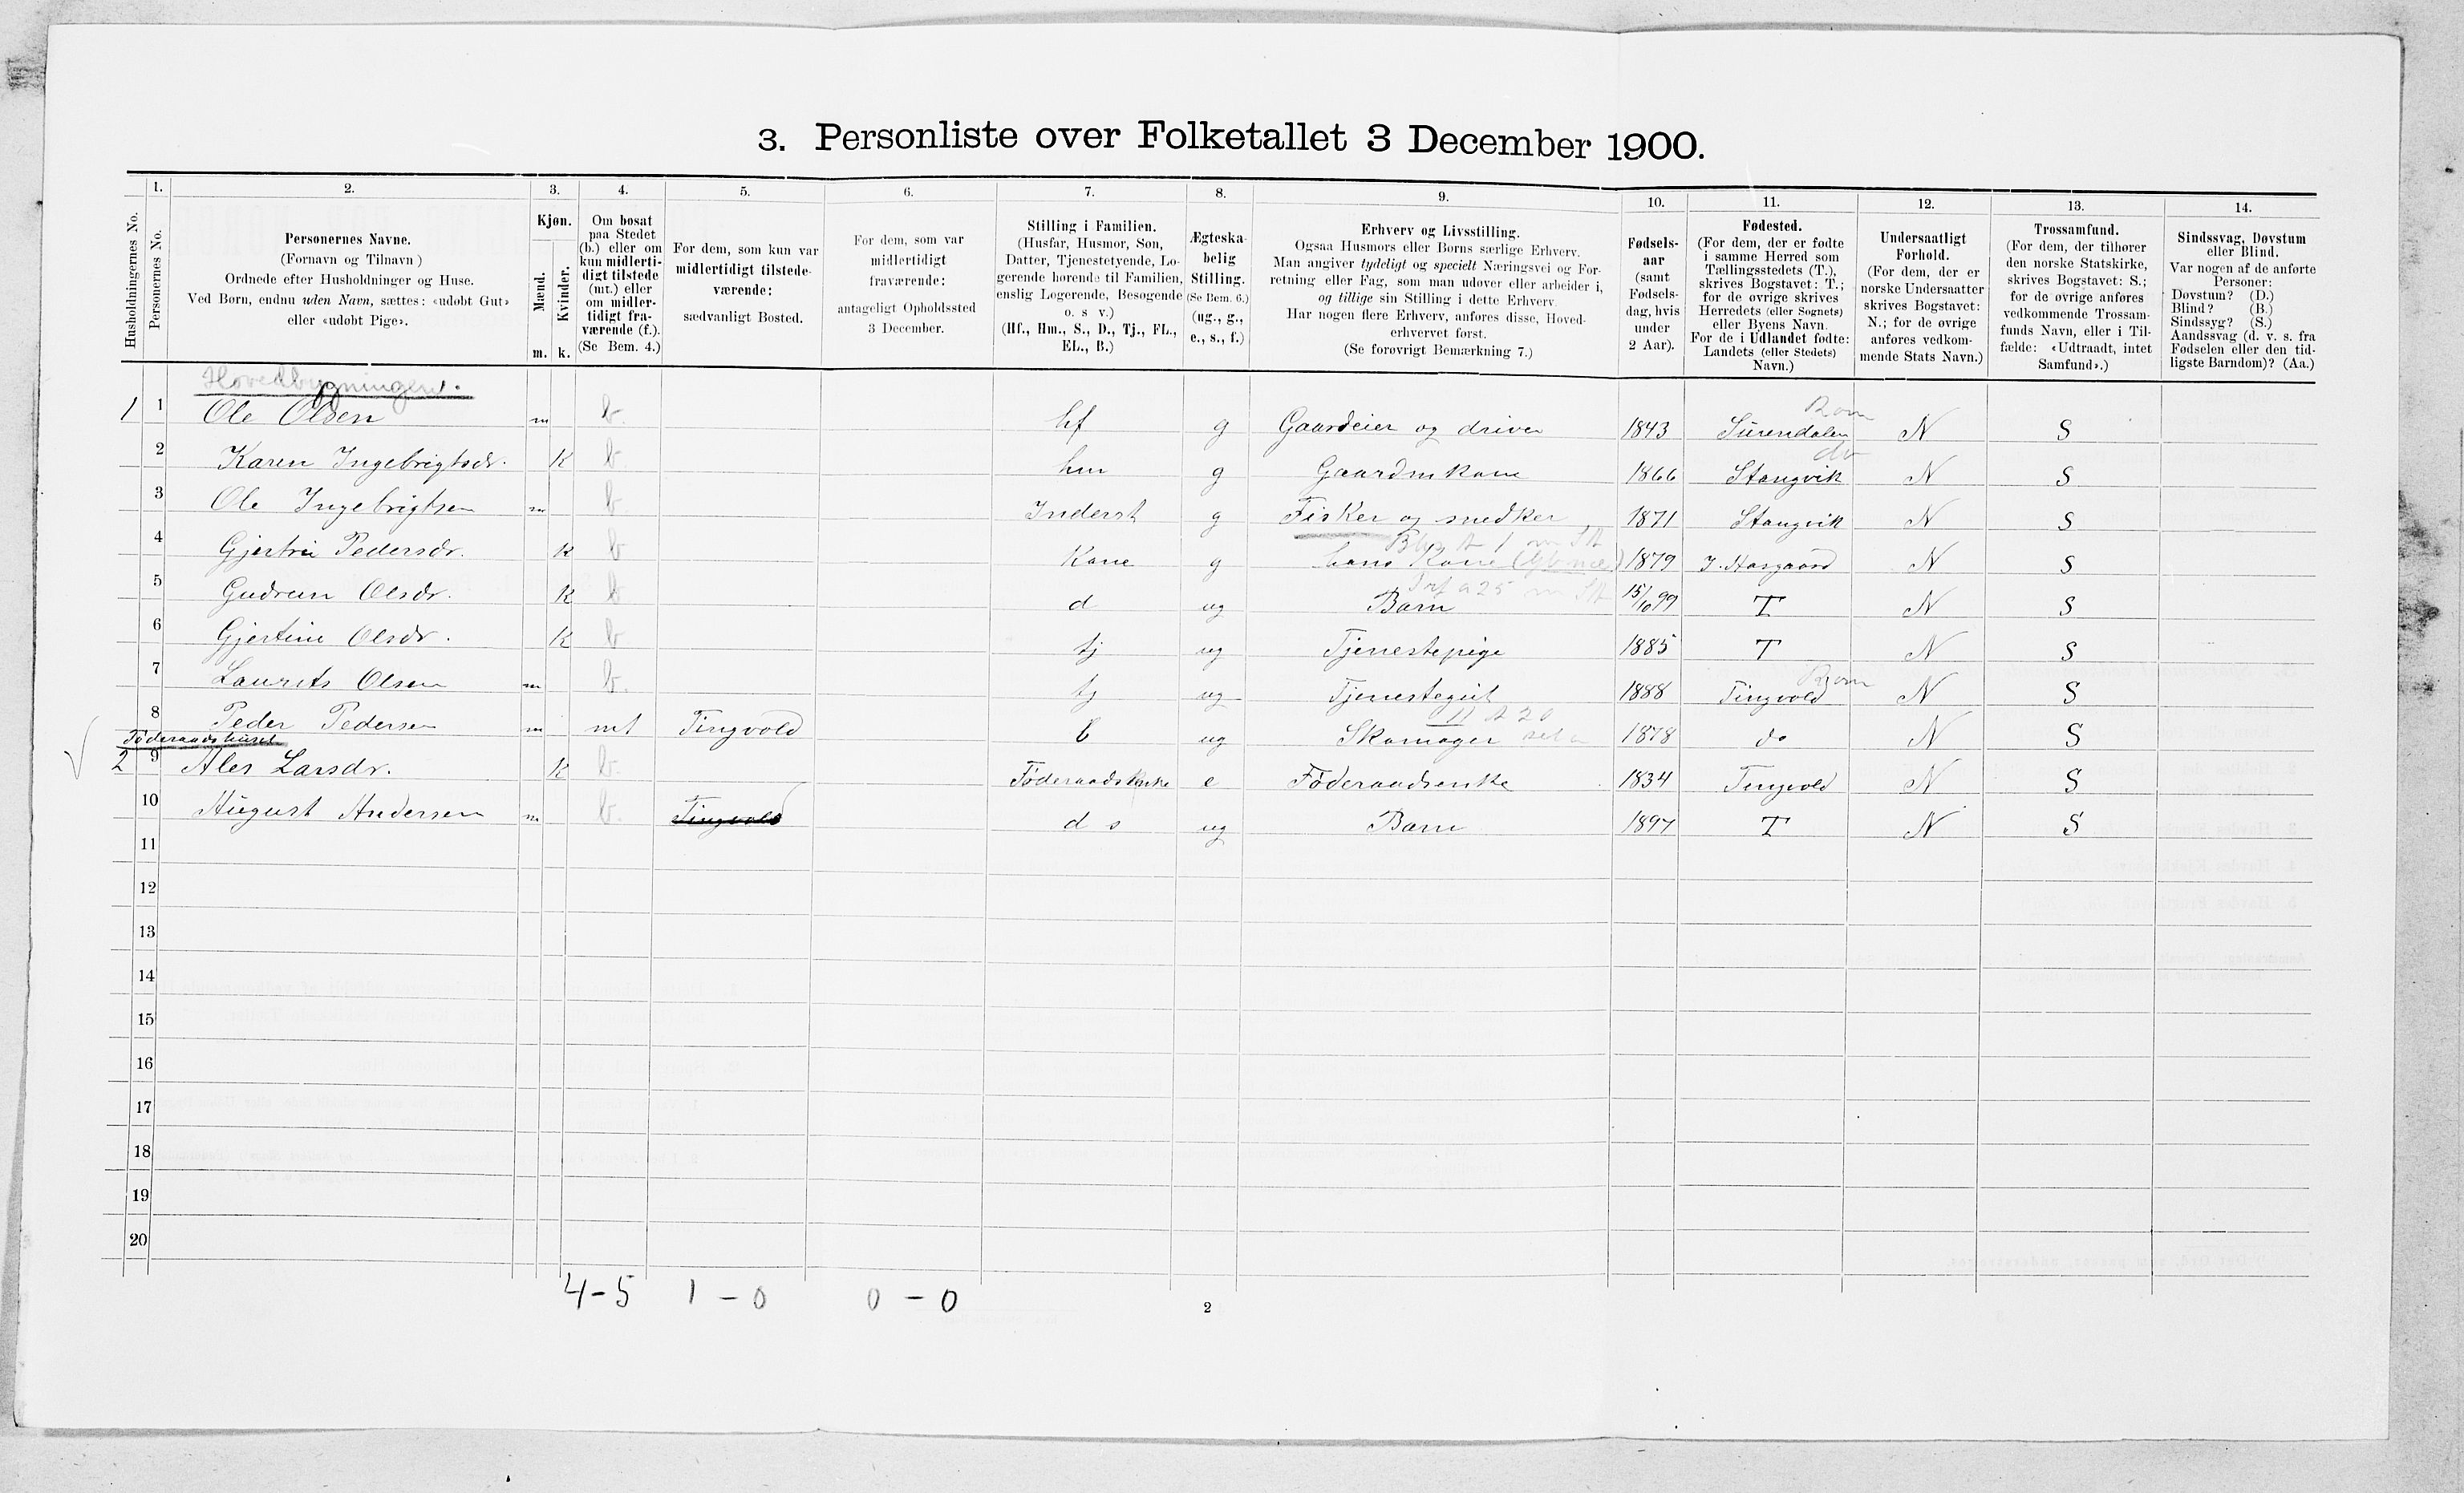 3. Personliste over Folketallet 3 December 1900.
1. 2. 3. 4. 5. 6. 7. 8. 9. 10. 11. 12. 13. 14.
Husholdningernes No.
Personernes No.
Personernes Navne.
(Fornavn og Tilnavn)
Ordnede efter Husholdninger og Huse.
Ved Børn, endnu uden Navn, sættes: «udøbt Gut»
eller «udøbt Pige».
Kjøn.
Mænd.
Kvinder.
m. k.
Om bosat
paa Stedet
(b.) eller om
kun midlerti-
digt tilstede
(mt.) eller
om midler-
tidigt fra-
værende (f.).
(Se Bem. 4.)
For dem, som kun var
midlertidigt tilstede-
værende:
sædvanligt Bosted.
For dem, som var
midlertidigt
fraværende:
antageligt Opholdssted
3 December.
Stilling i Familien.
(Husfar, Husmor, Søn,
Datter, Tjenestetyende, Lo-
gerende hørende til Familien,
enslig Logerende, Besøgende
o. s v.)
(Hf., Hm., S., D., Tj., FL.,
EL., B.)
Ægteska-
belig
Stilling.
(Se Bem. 6.)
(ug., g.,
e., s., f.)
Erhverv og Livsstilling.
Ogsaa Husmors eller Børns særlige Erhverv.
Man angiver tydeligt og specielt Næringsvei og For-
retning eller Fag, som man udøver eller arbeider i,
og tillige sin Stilling i dette Erhverv.
Har nogen flere Erhverv, anføres disse, Hoved-
erhvervet først.
(Se forøvrigt Bemærkning 7.)
Fødsels-
aar
(samt
Fødsels-
dag, hvis
under
2 Aar).
Fødested.
(For dem, der er fødte
i samme Herred som
Tællingsstedets (T.),
skrives Bogstavet: T.;
for de øvrige skrives
Herredets (eller Sognets)
eller Byens Navn.
For de i Udlandet fødte:
Landets (eller Stedets)
Navn.)
Undersaatligt
Forhold.
(For dem, der er
norske Undersaatter
skrives Bogstavet:
N.; for de øvrige
anføres vedkom-
mende Stats Navn.)
Trossamfund.
(For dem, der tilhører
den norske Statskirke,
skrives Bogstavet: S.;
for de øvrige anføres
vedkommende Trossam-
funds Navn, eller i Til-
fælde: «Udtraadt, intet
Samfund».)
Sindssvag, Døvstum
eller Blind.
Var nogen af de anførte
Personer:
Døvstum? (D.)
Blind? (B.)
Sindssyg? (S.)
Aandssvag (d. v. s. fra
Fødselen eller den tid-
ligste Barndom)? (Aa.)
Hovedbygningen.
1 1 Ole Olsen m b. hf g Gaardeier og driver 1843 Surendalen Rom N S
2 Karen Ingebrigtsdr. K b hm g Gaardmkone 1866 Stangvik do N S
3 Ole Ingebrigtsen m b Inderst g Fisker og snedker 1871 Stangvik N S
4 Gjertrie Pedersdr. K b Kone g hans Kone 1879 N S
5 Gudrun Olsdr. K b d ug Barn 15/10 99 T N S
6 Gjertine Olsdr. K b tj ug Tjenestepige 1885 T N S
7 Laurits Olsen m b. tj ug Tjenestegut 1888 Tingvold N S
8 Peder Pedersen m mt Tingvold b ug Skomager 1878 do N S
Føderaadshuset
2 9 Ales Larsdr. K b. Føderaads e Føderaadsenke 1834 Tingvold N S
10 August Andersen m b. Tingvold d s ug Barn 1897 T N S
11
12
13
14
15
16
17
18
19
20
4-5 1-0 0-0
2